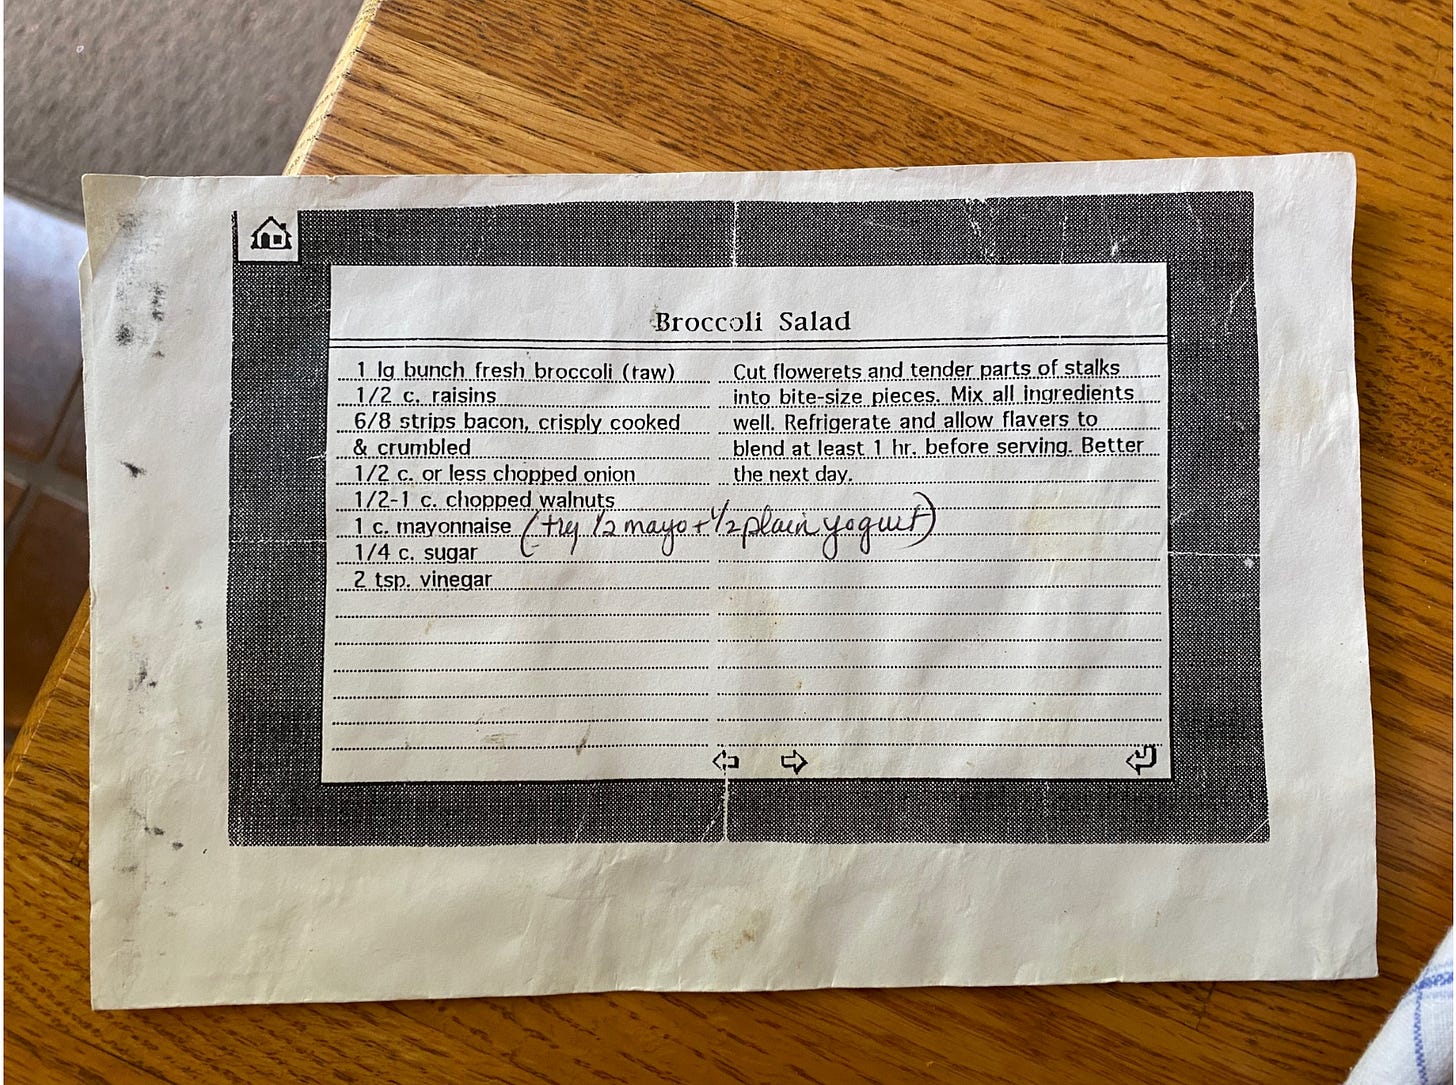 Broccoli Salad
1 lg bunch fresh broccoli (raw)
1/2 c. raisins
6/8 strips bacon, crisply cooked
& crumbled
1/2 c. or less chopped onion
1/2-1 c. chopped walnuts
1 c. mayonnaise (try 1/2 mayo + 1/2 plain yogurt)
1/4 c. sugar
2 tsp. vinegar
Cut flowerets and tender parts of stalks
into bite-size pieces. Mix all ingredients
well. Refrigerate and allow flavers to
blend at least 1 hr. before serving. Better
the next day.